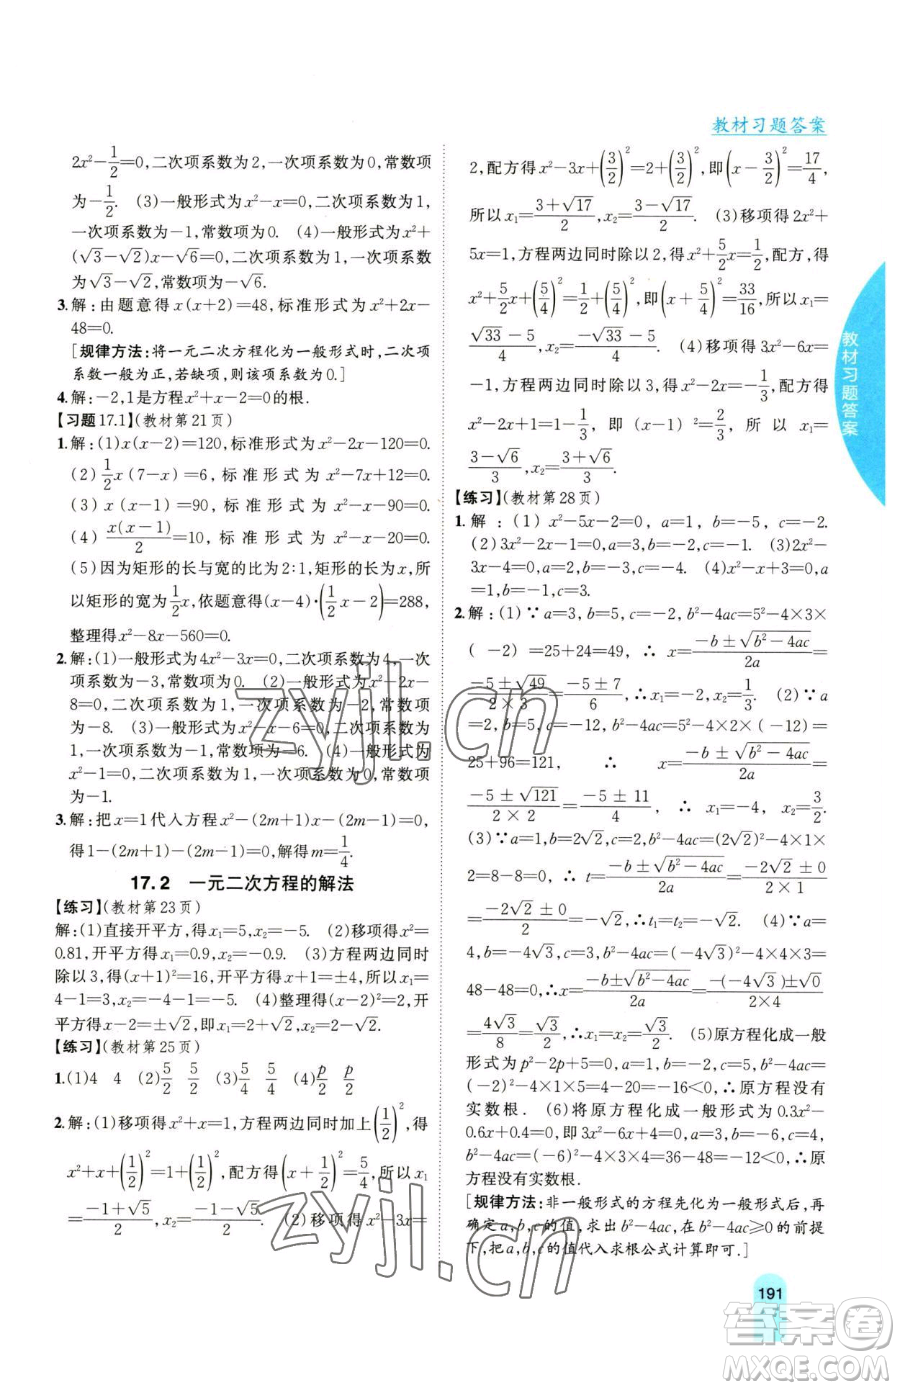 教材习题答案
2x²-1/2=0,二次项系数为2,一次项系数为0,常数项
为-1/2. (3)一般形式为x²-x=0,二次项系数为1,
一次项系数为-1,常数项为0. (4)一般形式为x²+
(√3-√2)x-√6=0,二次项系数为1,一次项系
数为√3-√2,常数项为-√6.
3.解:由题意得x(x+2)=48,标准形式为x²+2x-
48=0.
[规律方法:将一元二次方程化为一般形式时,二次项
系数一般为正,若缺项,则该项系数为0.]
4.解:-2,1是方程x²+x-2=0的根.
【习题17.1】(教材第21页)
1.解:(1)x(x-2)=120,标准形式为x²-2x-120=0.
(2)1/2x(7-x)=6,标准形式为x²-7x+12=0.
(3)x(x-1)=90,标准形式为x²-x-90=0.
(4)x(x-1)/2=10,标准形式为x²-x-20=0.
(5)因为矩形的长与宽的比为2:1,矩形的长为x,所
以矩形的宽为1/2x,依题意得(x-4)·(1/2x-2)=288,
整理得x²-8x-560=0.
2.解:(1)一般形式为4x²-3x=0,二次项系数为4,一次
项系数为-3,常数项为0. (2)一般形式为x²-2x-
8=0,二次项系数为1,一次项系数为-2,常数项为
-8. (3)一般形式为x²-x-6=0,二次项系数为
1,一次项系数为-1,常数项为-6. (4)一般形式为
x²-1=0,二次项系数为1,一次项系数为0,常数项
为-1.
3.解:把x=1代入方程x²-(2m+1)x-2m=0,
得1-(2m+1)-2m=0,解得m=1/4.
17.2 一元二次方程的解法
【练习】(教材第23页)
解:(1)直接开平方,得x₁=5,x₂=-5. (2)移项得x²=
0.81,开平方得x₁=0.9,x₂=-0.9. (3)方程两边同时
除以3,得(x+1)²=16,开平方得x+1=±4,所以x₁=
4-1=3,x₂=-4-1=-5. (4)整理得(x-2)²=2,开
平方得x-2=±√2,即x₁=2+√2,x₂=2-√2.
【练习】(教材第25页)
1.(1)4 4 (2)5/2 5/2 (3)5/4 5/4 (4)p/2 p/2
2.解:(1)移项得x²+x=1,方程两边同时加上(1/2)²,得
x²+x+(1/2)²=1+(1/2)²,配方得(x+1/2)²=5/4,所以x₁
=(-1+√5)/2,x₂=(-1-√5)/2. (2)移项得x²-3x=
2,配方得x²-3x+(3/2)²=2+(3/2)²,即(x-3/2)²=17/4,
所以x₁=(3+√17)/2,x₂=(3-√17)/2. (3)移项得2x²+
5x=1,方程两边同时除以2,得x²+5/2x=1/2,配方,得
x²+5/2x+(5/4)²=1/2+(5/4)²,即(x+5/4)²=33/16,所以x₁=
(√33-5)/4,x₂=(-√33-5)/4. (4)移项得3x²-6x=
-1,方程两边同时除以3,得x²-2x=-1/3,配方得x²
-2x+1²=-1/3+1²,即(x-1)²=2/3,所以x₁=
(3-√6)/3,x₂=(3+√6)/3.
【练习】(教材第28页)
1.解:(1)x²-5x-2=0,a=1,b=-5,c=-2.
(2)3x²-2x-1=0,a=3,b=-2,c=-1. (3)2x²-
3x-4=0,a=2,b=-3,c=-4. (4)x²-x+3=0,
a=1,b=-1,c=3.
2.解:(1)∵a=3,b=5,c=-2,b²-4ac=5²-4×3×
(-2)=25+24=49,∴x=(-b±√(b²-4ac))/2a=
(-5±√49)/(2×3)=(-5±7)/6,∴x₁=-2,x₂=1/3. (2)∵a
=2,b=5,c=-12,b²-4ac=5²-4×2×(-12)=
25+96=121, ∴ x=(-b±√(b²-4ac))/2a=
(-5±√121)/(2×2)=(-5±11)/4,∴x₁=-4,x₂=3/2.
(3)∵a=1,b=2√2,c=2,b²-4ac=(2√2)²-4×1×
2=0,∴t=(-b±√(b²-4ac))/2a=(-2√2±0)/(2×1)=
(-2√2±0)/2,∴t₁=t₂=-√2. (4)∵a=
4,b=-4√3,c=3,b²-4ac=(-4√3)²-4×4×3=
48-48=0,∴x=(-b±√(b²-4ac))/2a=(-(-4√3)±√0)/(2×4)
=4√3/8=√3/2,∴x₁=x₂=√3/2. (5)原方程化成一般
形式为p²-2p+5=0,a=1,b=-2,c=5,b²-4ac=
(-2)²-4×1×5=4-20=-16<0,∴原方程没有
实数根. (6)将原方程化成一般形式为0.3x²-
0.6x+0.4=0,即3x²-6x+4=0,a=3,b=-6,c=4,
b²-4ac=(-6)²-4×3×4=36-48=-12<0,∴原
方程没有实数根.
[规律方法:非一般形式的方程先化为一般形式后,再
确定a,b,c的值,求出b²-4ac,在b²-4ac≥0的前提
下,把a,b,c的值代入求根公式计算即可.]
教材习题答案
191
zyjl.cn
zyjl.cn
答案圈
MXQE.COM